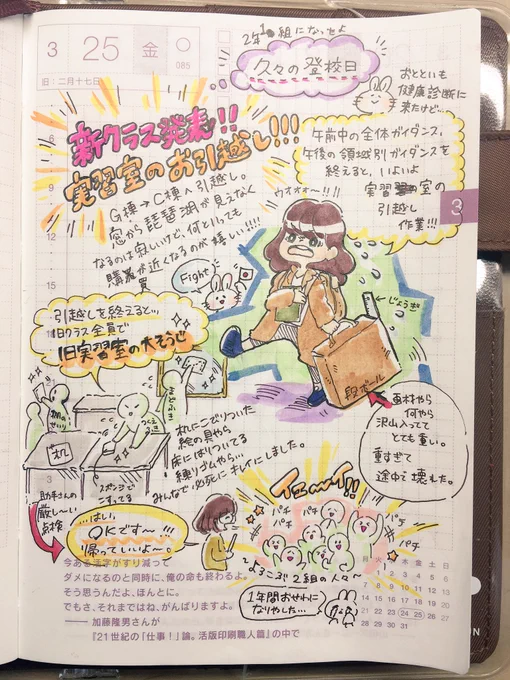 3 25 金
085
旧:二月十七日
2年1組になったよ
久々の登校日
おとといも
健康診断に
来たけど…
新クラス発表!!
実習室のお引越し!!!
午前中の全体ガイダンス、
午後の領域別ガイダンスを
終えると、いよいよ
実習室の
引越し
作業!!!
3
G棟→C棟へ引越し。
窓から琵琶湖が見えなく
なるのは寂しいけど、何といっても
購買が近くなるのが嬉しい!!!!
ウオォォ〜!!!
Fight
じょうぎ
段ボール
引越しを終えると…
旧クラス全員で
旧実習室の大そうじ
まどふき
机の
せいり
つくえふき
机
スポンジで
こすってる
机にこびりついた
絵の具やら
床にはりついてる
練りゴムやら…
みんなで必死にキレイにしました。
画材やら
何やら
沢山入ってて
とても重い。
重すぎて
途中で壊れた。
助手さんの
厳し〜い
点検
…はい、
OKです〜!!!
帰っていいよ〜。
イェ〜イ!!
パチ
パチ
パチ
パチ
パチ
パチ
〜ようこそ2組の人々〜
1年間おせわに
なりやした…
今ある活字がすり減って
ダメになるのと同時に、俺の命も終わるよ。
そう思うんだよ、ほんとに。
でもさ、それまではね、がんばりますよ。
―― 加藤隆男さんが
『21世紀の「仕事!」論。活版印刷職人篇』の中で
月 火 水 木 金 土 日
1 2 3 4 5 6
7 8 9 10 11 12 13
14 15 16 17 18 19 20
21 22 23 24 25 26 27
28 29 30 31